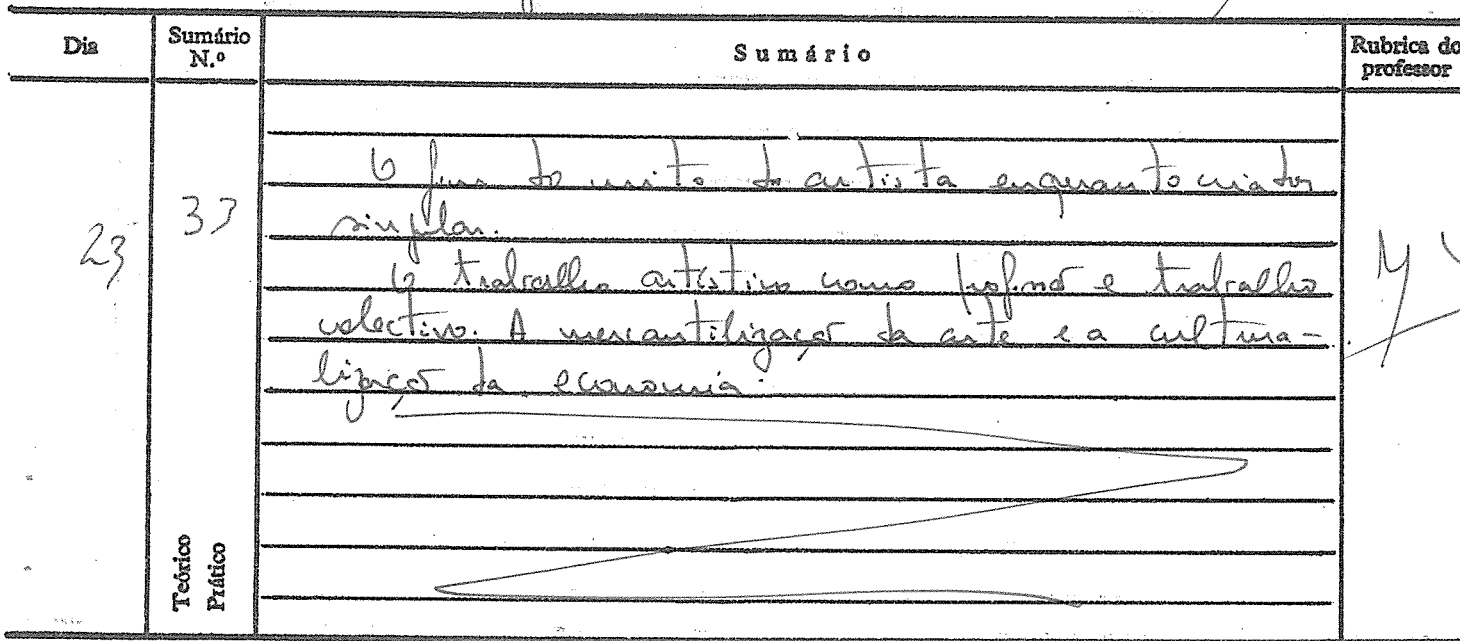 Dia Sumário N.º Sumário Rubrica do professor
O fim do mito do artista enquanto criador
23 33 singular.
O trabalho artístico como profissão e trabalho
colectivo. A mercantilização da arte e a cultura-
lização da economia.
Teórico
Prático